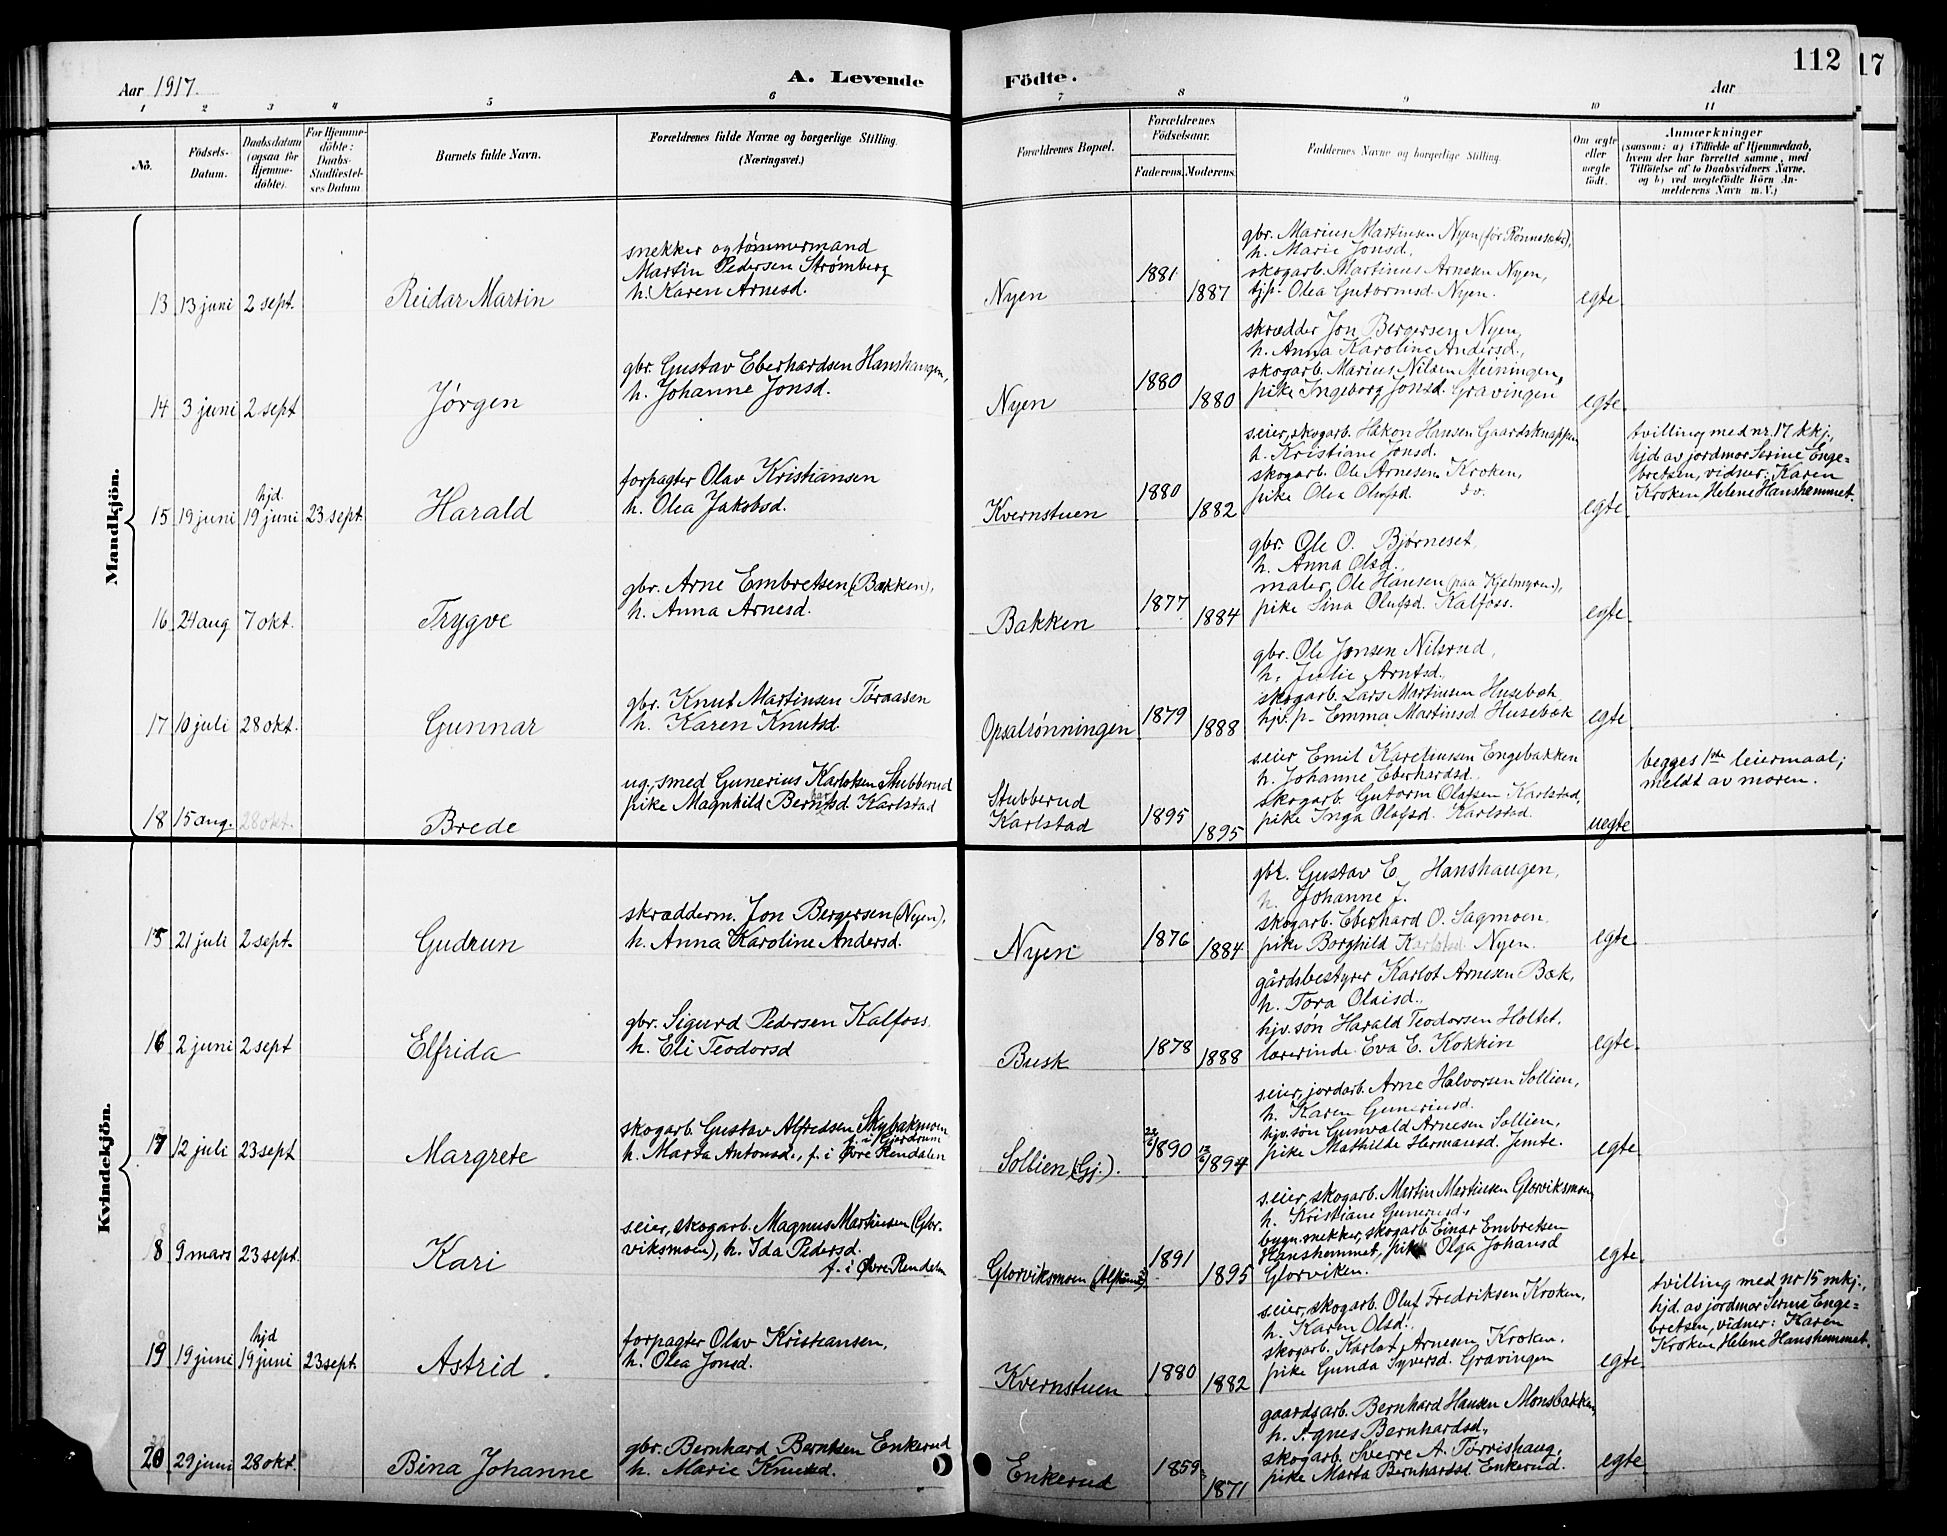 Aar 1917.
A. Levende
Födte.
112
17
Aar
1 2 3 4 5 6 7 8 9 10 11
No.
Födsels-
Datum.
Daabsdatum
(ogsaa for
Hjemme-
döbte).
For Hjemme-
döbte:
Daabs-
Stadfæstel-
ses Datum
Barnets fulde Navn.
Forældrenes fulde Navne og borgerlige Stilling.
(Næringsvei.)
Forældrenes Bopæl.
Forældrenes
Födselsaar.
Faderens. Moderens.
Faddernes Navne og borgerlige Stilling.
Om ægte
eller
uægte
födt.
Anmærkninger
(saasom: a) i Tilfælde af Hjemmedaab,
hvem der har forrettet samme, med
Tilföielse af to Daabsvidners Navne,
og b) ved uægtefödte Börn An-
melderens Navn m. V.)
Mandkjön.
13 13 juni 2 sept. Reidar Martin
snekker og tømmermand
Martin Pedersen Strømberg
h. Karen Arnesd.
Nyen 1881 1887
gbr. Marius Martinsen Nyen (før Rønnesæter),
h. Marie Jonsd.,
skogarb. Martinus Arnesen Nyen,
tjp. Olea Gutormsd. Nyen.
egte
14 3 juni 2 sept Jørgen
gbr. Gustav Eberhardsen Hanshaugen,
h. Johanne Jonsd.
Nyen 1880 1880
skrædder Jon Bergersen Nyen,
h. Anna Karoline Andersd.,
skogarb. Marius Nilsen Meiningen,
pike Ingeborg Jonsd. Gravingen
egte
15 19 juni hjd. 19 juni 23 sept. Harald
forpagter Olav Kristiansen
h. Olea Jakobsd.
Kvernstuen 1880 1882
seier, skogarb. Håkon Hansen Gaardsknappen
h. Kristiane Jonsd.
skogarb. Ole Arnesen Kroken,
pike Olea Olufsd. do.
egte
tvilling med nr. 17 kkj.,
hjd. av jordmor Serine Enge-
bretsen, vidner: Karen
Kroken, Helene Hanshemmet.
16 24 aug 7 okt. Trygve
gbr. Arne Embretsen (Bakken),
h. Anna Arnesd.
Bakken 1877 1884
gbr. Ole O. Bjørneset,
h. Anna Olsd.,
maler Ole Hansen (paa Kjelmyren),
pike Lina Olufsd. Kalfoss.
egte
17 10 juli 28 okt. Gunnar
gbr. Knut Martinsen Tøraasen
h. Karen Knutsd.
Opsalrønningen 1879 1888
gbr. Ole Jonsen Nilsrud,
h. Julie Arntsd.,
skogarb. Lars Martinsen Husebæk
hjv. p. Emma Martinsd. Husebæk
egte
18 15 aug. 28 okt. Brede
ug., smed Gunerius Karlotsen Stubberud
pike Magnhild Berntsd. Karlstad
Stubberud
Karlstad 1895 1895
seier Emil Kareliussen Engebakken
h. Johanne Eberhardsd.,
skogarb. Gutorm Olafsen Karlstad,
pike Inga Olafsd. Karlstad.
uegte
begges 1ste leiermaal;
meldt av moren.
Kvindekjön.
15 21 juli 2 sept. Gudrun
skrædderm. Jon Bergersen (Nyen),
h. Anna Karoline Andersd.
Nyen 1876 1884
gbr. Gustav E. Hanshaugen,
h. Johanne J.
skogarb. Eberhard O. Sagmoen,
pike Borghild Karlstad Nyen.
egte
16 2 juni 2 sept Elfrida
gbr. Sigurd Pedersen Kalfoss,
h. Eli Teodorsd
Busk 1878 1888
gårdsbestyrer Karlot Arnesen Bæk,
h. Tora Olaisd.,
hjv. søn Harald Teodorsen Holtet,
lærerinde Eva E. Kokkin
egte
17 12 juli 23 sept Margrete
skogarb. Gustav Alfredsen Skybakmoen
f. i Gjerdrum
h. Marta Antonsd., f. i Øvre Rendalen
Sollien (Gj.). 22/6 1890 1894
seier, jordarb. Arne Halvorsen Sollien,
h. Karen Guneriusd.
hjv. søn Gunvald Arnesen Sollien,
pike Mathilde Hermansd. Jemte.
egte
18 9 mars 23 sept. Kari
seier, skogarb. Magnus Martinsen (Glor-
viksmoen), h. Ida Pedersd.
f. i Øvre Rendalen
Glorviksmoen 1891 1895
seier, skogarb. Martin Martinsen Glorviksmoen
h. Kristiane Guneriusd.,
bygn. snekker, skogarb. Einar Embretsen
Hanshemmet, pike Olga Johansd
Glorviken.
egte
19 19 juni hjd 19 juni 23 sept. Astrid.
forpagter Olav Kristiansen,
h. Olea Jonsd.
Kvernstuen 1880 1882
seier, skogarb. Oluf Fredriksen Kroken,
h. Karen Olsd.,
skogarb. Karlot Arnesen Kroken,
pike Gunda Syversd. Gravingen
egte
tvilling med nr 15 mkj.,
hjd. av jordmor Serine Enge-
bretsen, vidner: Karen
Kroken, Helene Hanshemmet.
20 29 juni 28 okt. Bina Johanne
gbr. Bernhard Berntsen Enkerud
h. Marie Knutsd.
Enkerud 1859 1871
gaardsarb. Bernhard Hansen Monsbakken,
h. Agnes Bernhardsd.,
skogarb. Sverre A. Tørrishaug,
pike Marta Bernhardsd. Enkerud.
egte